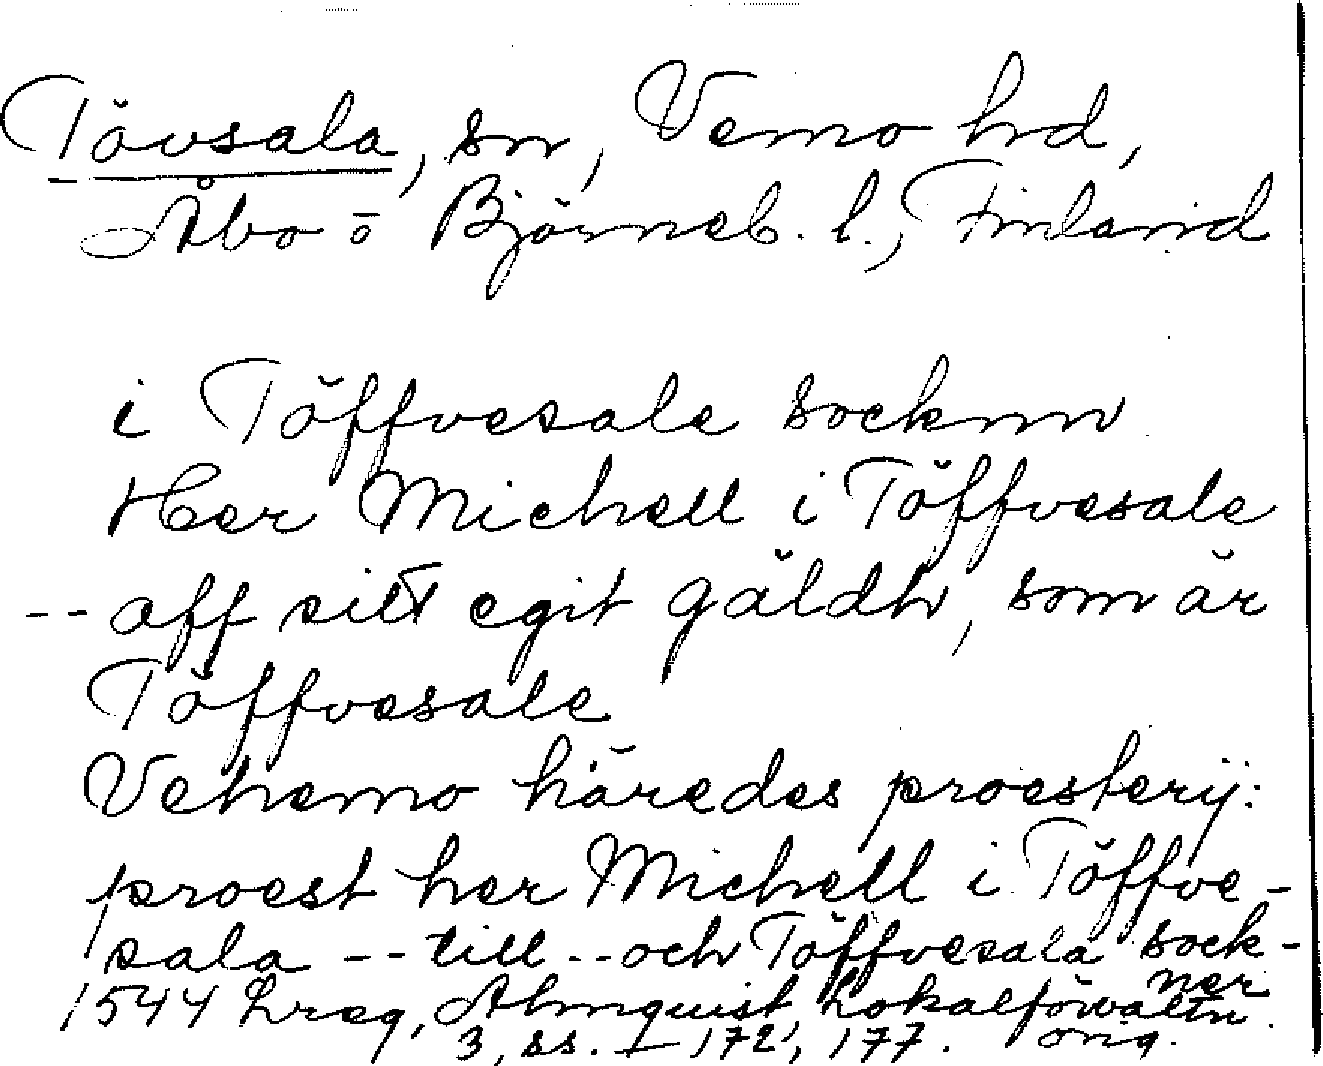 Tövsala, sn, Vemo hd,
Åbo o Björneb. l., Finland
i Töffvesale socknn
Her Michell i Töffvesale
-- aff sitt egit gäldh, som är
Töffvesale
Vehemo häredes proesterij:
proest her Michell i Töffve-
sala -- till -- och Töffvesala sock-
ner
1544 Lreg, Almquist Lokalförvaltn.
3, ss. 172, 177. orig.